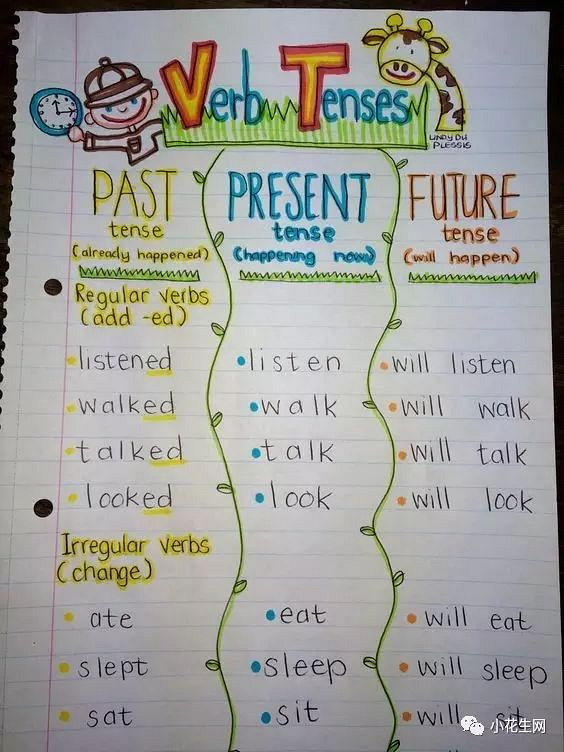 Verb Tenses
LINDY DU
PLESSIS
PAST PRESENT FUTURE
tense tense tense
(already happened) (happening now) (will happen)
Regular verbs
(add -ed)
listened listen will listen
walked walk will walk
talked talk will talk
looked look will look
Irregular verbs
(change)
ate eat will eat
slept sleep will sleep
sat sit will sit
小花生网